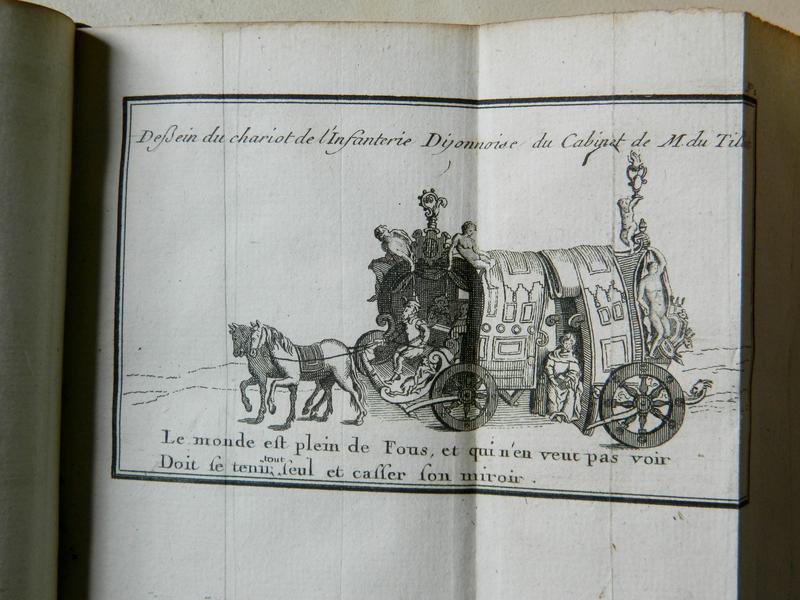 Deßein du chariot de l'Infanterie Dijonnoise du Cabinet de M. du
Le monde est plein de Fous, et qui n'en veut pas voir
Doit se tenir tout seul et casser son miroir.